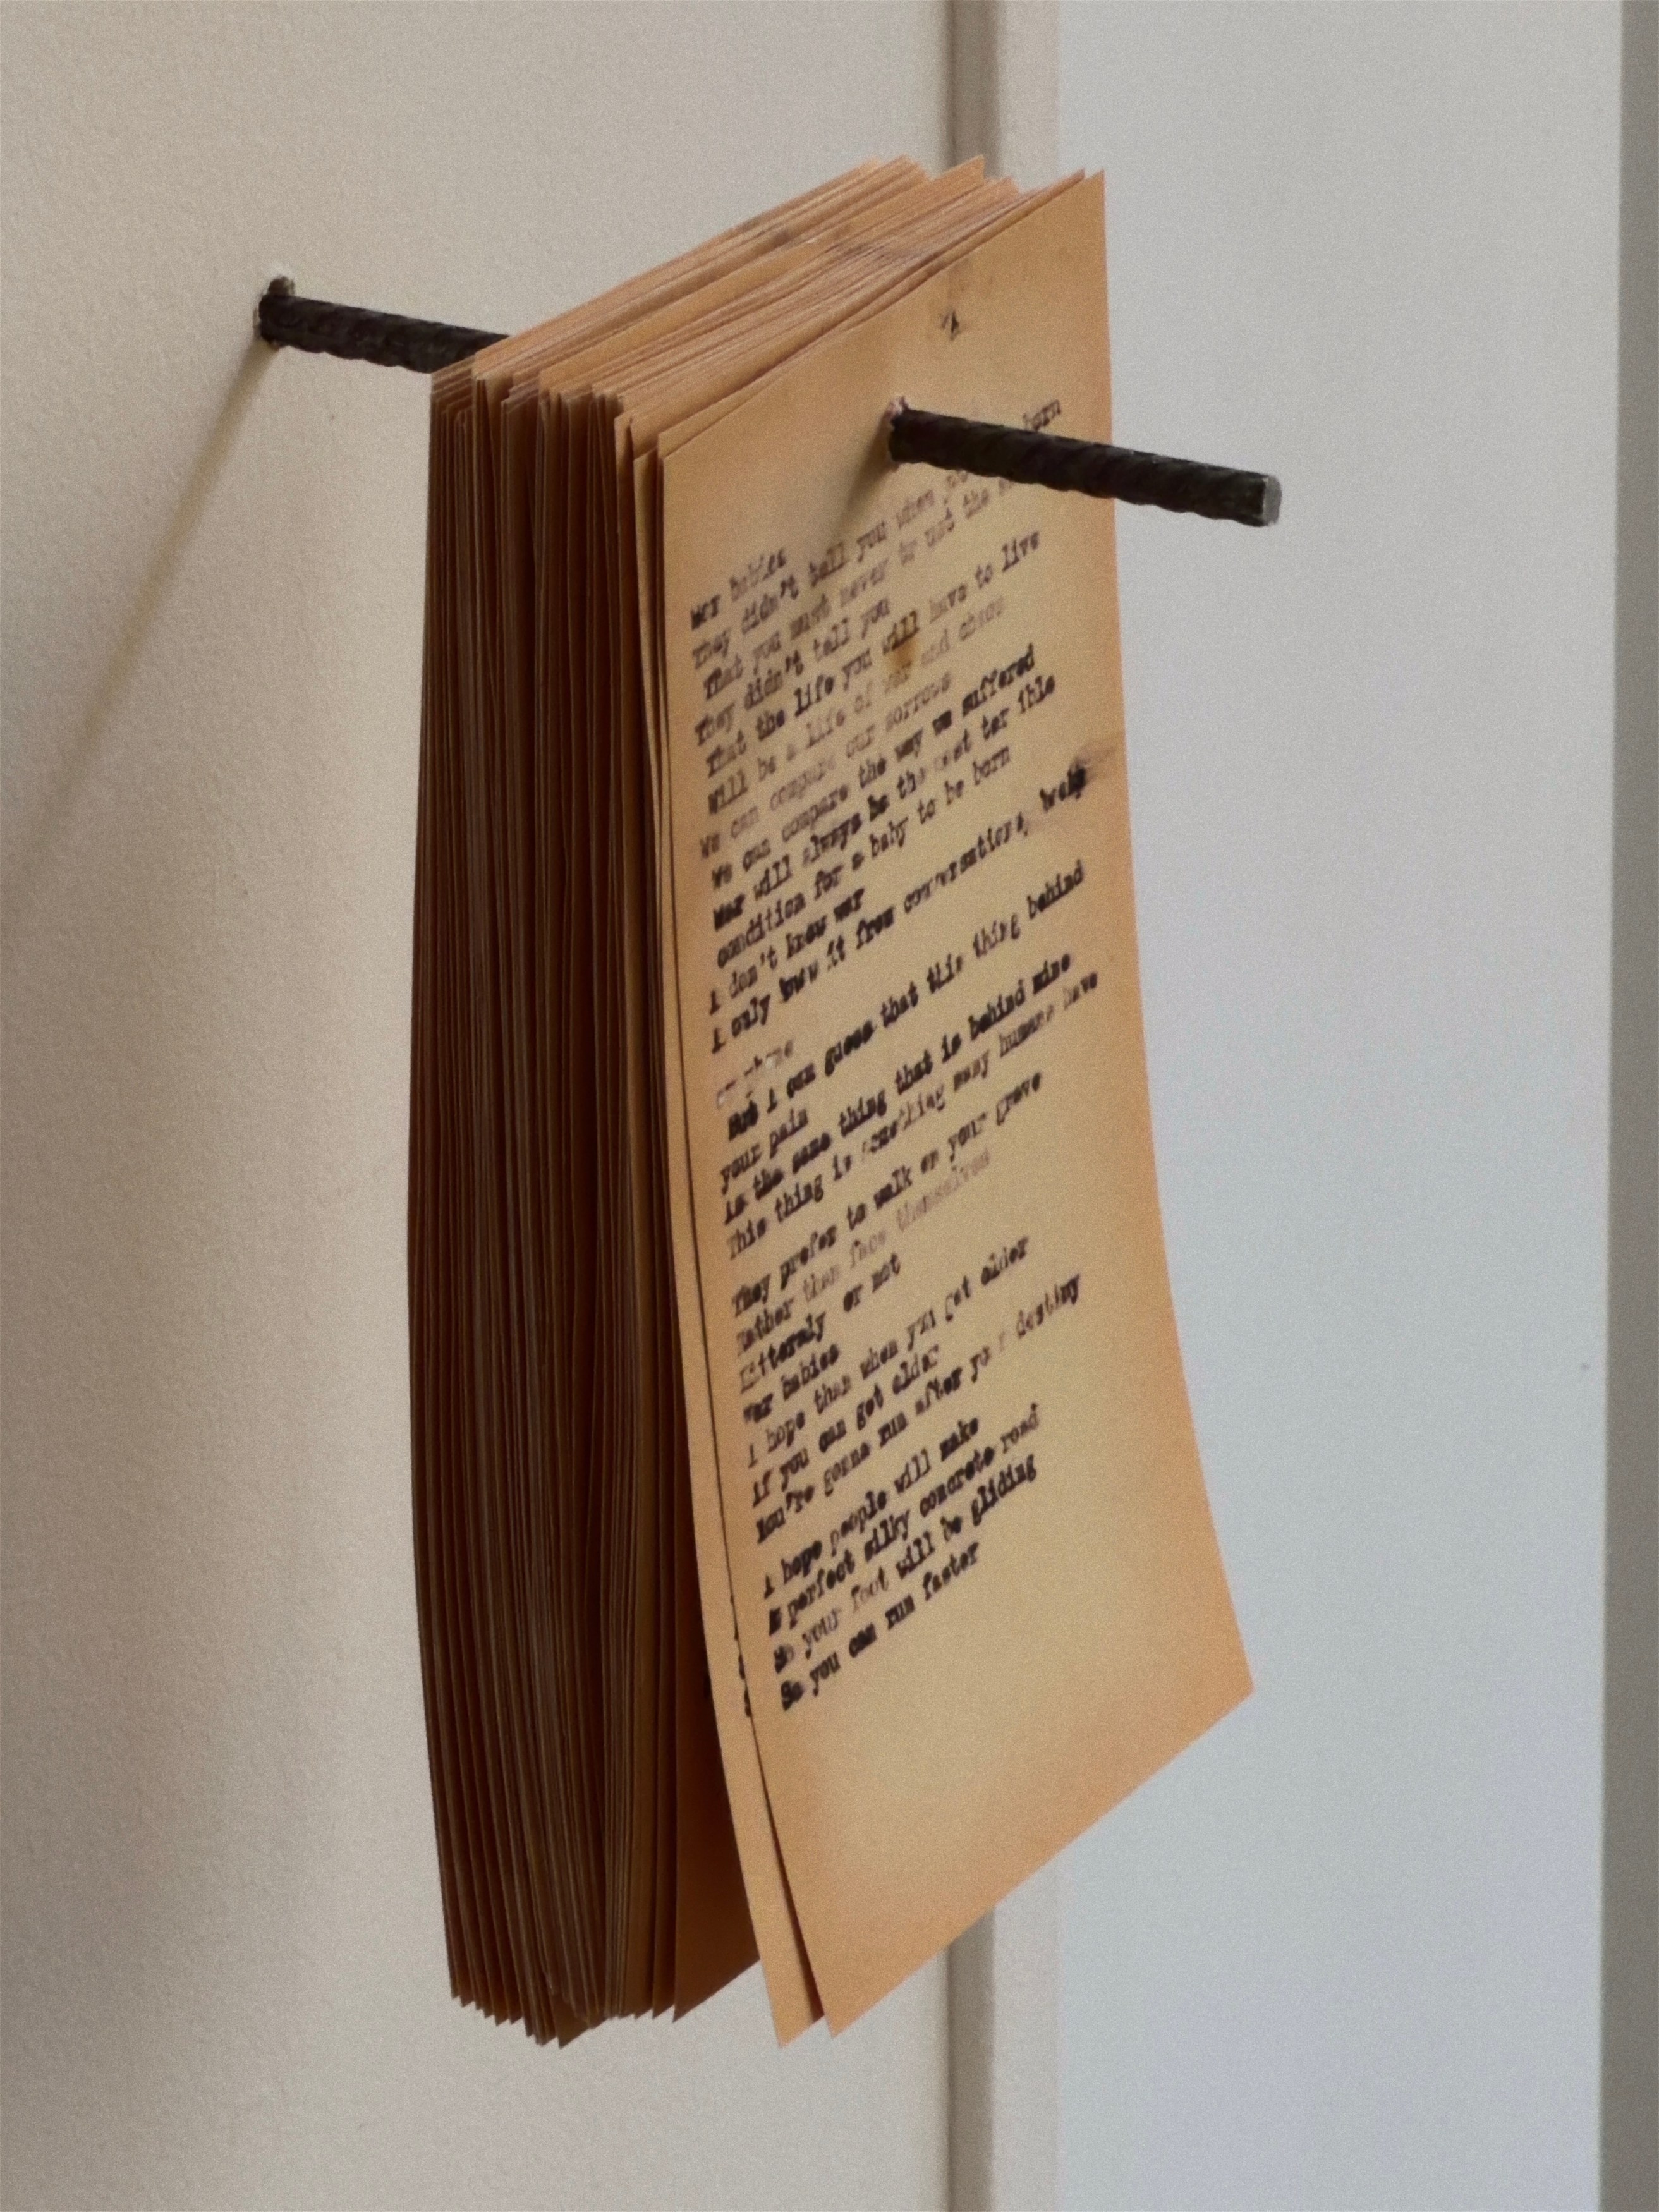 War babies
They didn't tell you when born
That you must never trust the
They didn't tell you
That the life you will have to live
Will be a life of war and chaos
We can compare our sorrows
We can compare the way we suffered
War will always be the most ter ible
condition for a baby to be born
I don't know war
I only know it from conversations,
But I can guess that this thing behind
your pain
is the same thing that is behind mine
This thing is something many humans have
They prefer to walk on your grave
Rather than face themselves
Litteraly or not
War babies
I hope than when you get older
If you can get older
You're gonna run after your destiny
I hope people will make
A perfect silky concrete road
So your foot will be gliding
So you can run faster